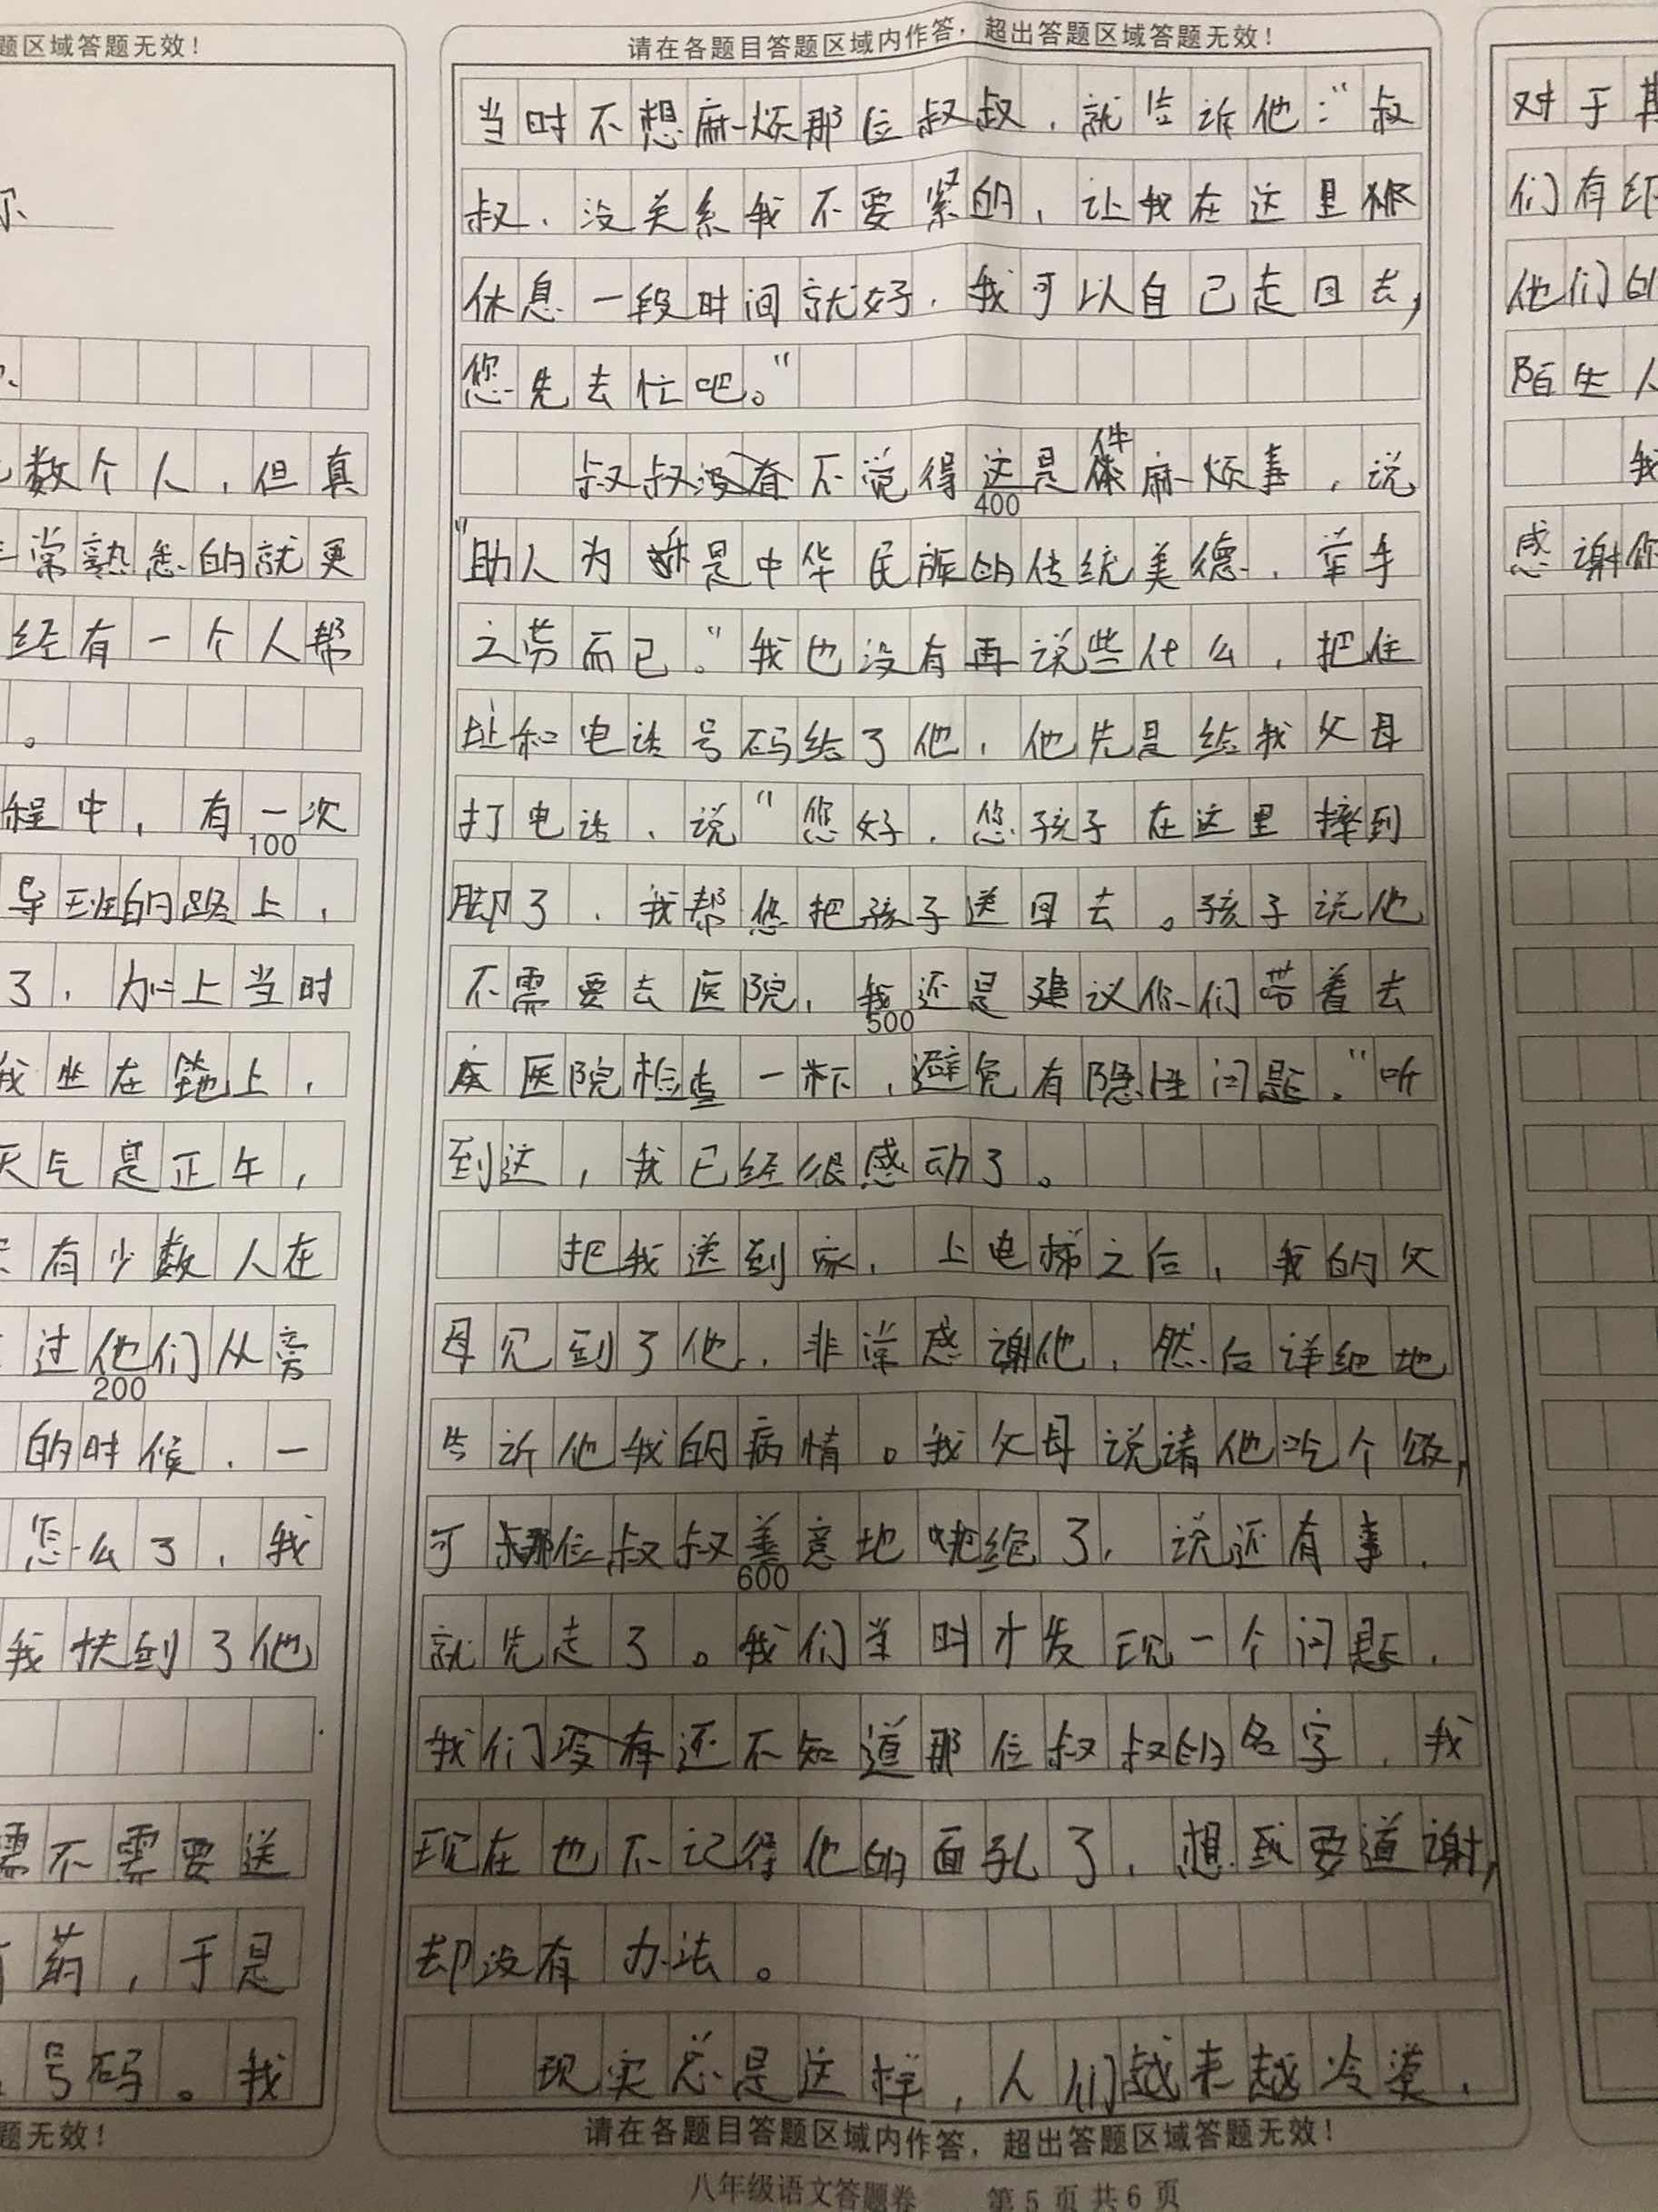 题区域答题无效！
数个人，但真
常熟悉的就更
经有一个人帮
。
程中，有一次
100
导班的路上，
了，加上当时
我坐在地上，
天气是正午，
有少数人在
过他们从旁
200
的时候，一
怎么了，我
我快到了他
需不需要送
药，于是
号码。我
题无效！
请在各题目答题区域内作答，超出答题区域答题无效！
当时不想麻烦那位叔叔，就告诉他：“叔
叔，没关系我不要紧的，让我在这里
休息一段时间就好，我可以自己走回去，
您先去忙吧。”
叔叔不觉得这是件麻烦事，说
400
“助人为是中华民族的传统美德，举手
之劳而已。”我也没有再说些什么，把住
址和电话号码给了他，他先是给我父母
打电话，说“您好，您孩子在这里摔到
脚了，我帮您把孩子送回去。孩子说他
不需要去医院，我还是建议你们带着去
500
医院检查一下，避免有隐性问题。”听
到这，我已经很感动了。
把我送到家，上电梯之后，我的父
母见到了他，非常感谢他，然后详细地
告诉他我的病情。我父母说请他吃个饭，
可那位叔叔善意地拒绝了，说还有事，
600
就先走了。我们当时才发现一个问题，
我们还不知道那位叔叔的名字，我
现在也不记得他的面孔了，想要道谢，
却没有办法。
现实总是这样，人们越来越冷漠，
请在各题目答题区域内作答，超出答题区域答题无效！
八年级语文答题卷 第5页共6页
对于
们有
他们的
陌生人
我
感谢你